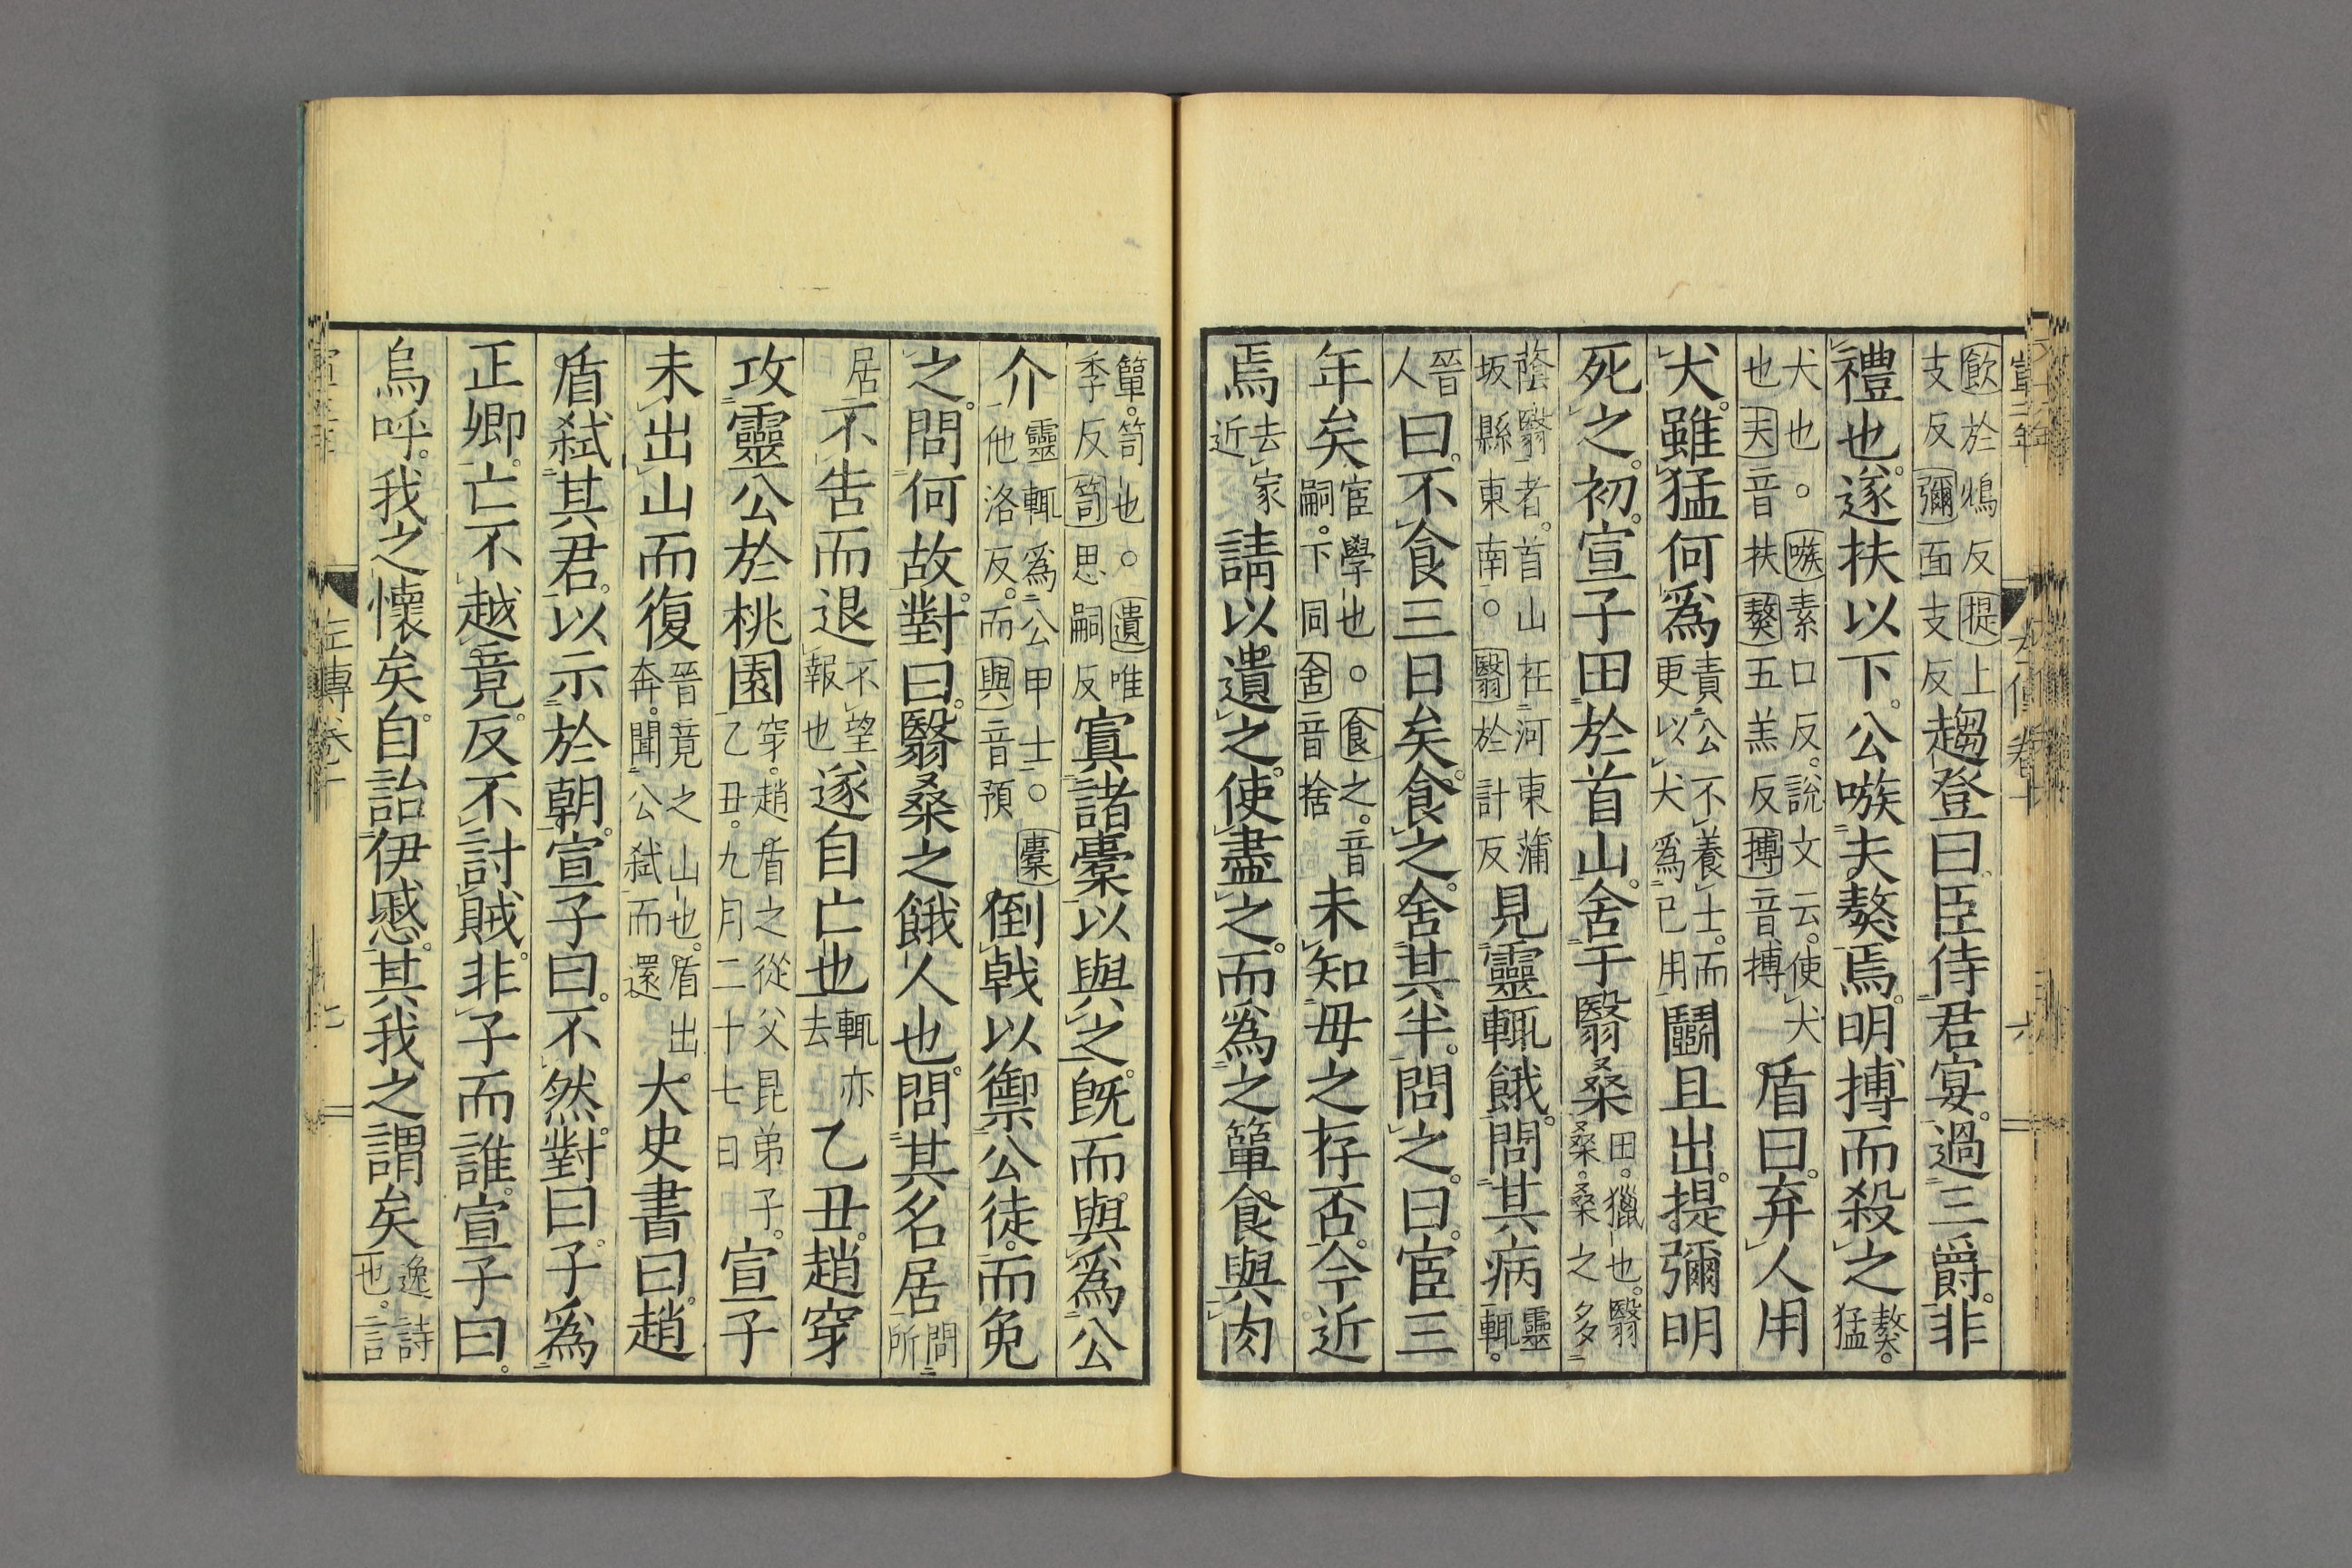 飲於鴆反提上支反彌面支反趨登曰臣侍君宴過三爵非
禮也遂扶以下公嗾夫獒焉明搏而殺之獒猛
犬也○嗾素口反說文云使犬也夫音扶獒五羔反搏音搏盾曰弃人用
犬雖猛何為責公不養士而更以犬為己用鬭且出提彌明
死之初宣子田於首山舍于翳桑田獵也翳桑桑之多
蔭翳者首山在河東蒲坂縣東南○翳於計反見靈輒餓問其病靈輒
晉人曰不食三日矣食之舍其半問之曰宦三
年矣宦學也○食之音嗣下同舍音捨未知母之存否今近
焉去家近請以遺之使盡之而為之簞食與肉
簞笥也○遺唯季反笥思嗣反寘諸橐以與之既而與為公
介靈輒為公甲士○橐他洛反而與音預倒戟以禦公徒而免
之問何故對曰翳桑之餓人也問其名居問所
居不告而退不望報也遂自亡也輒亦去乙丑趙穿
攻靈公於桃園穿趙盾之從父昆弟子乙丑九月二十七日宣子
未出山而復晉竟之山也盾出奔聞公弒而還大史書曰趙
盾弒其君以示於朝宣子曰不然對曰子為
正卿亡不越竟反不討賊非子而誰宣子曰
烏呼我之懷矣自詒伊慼其我之謂矣逸詩也言
左傳卷十